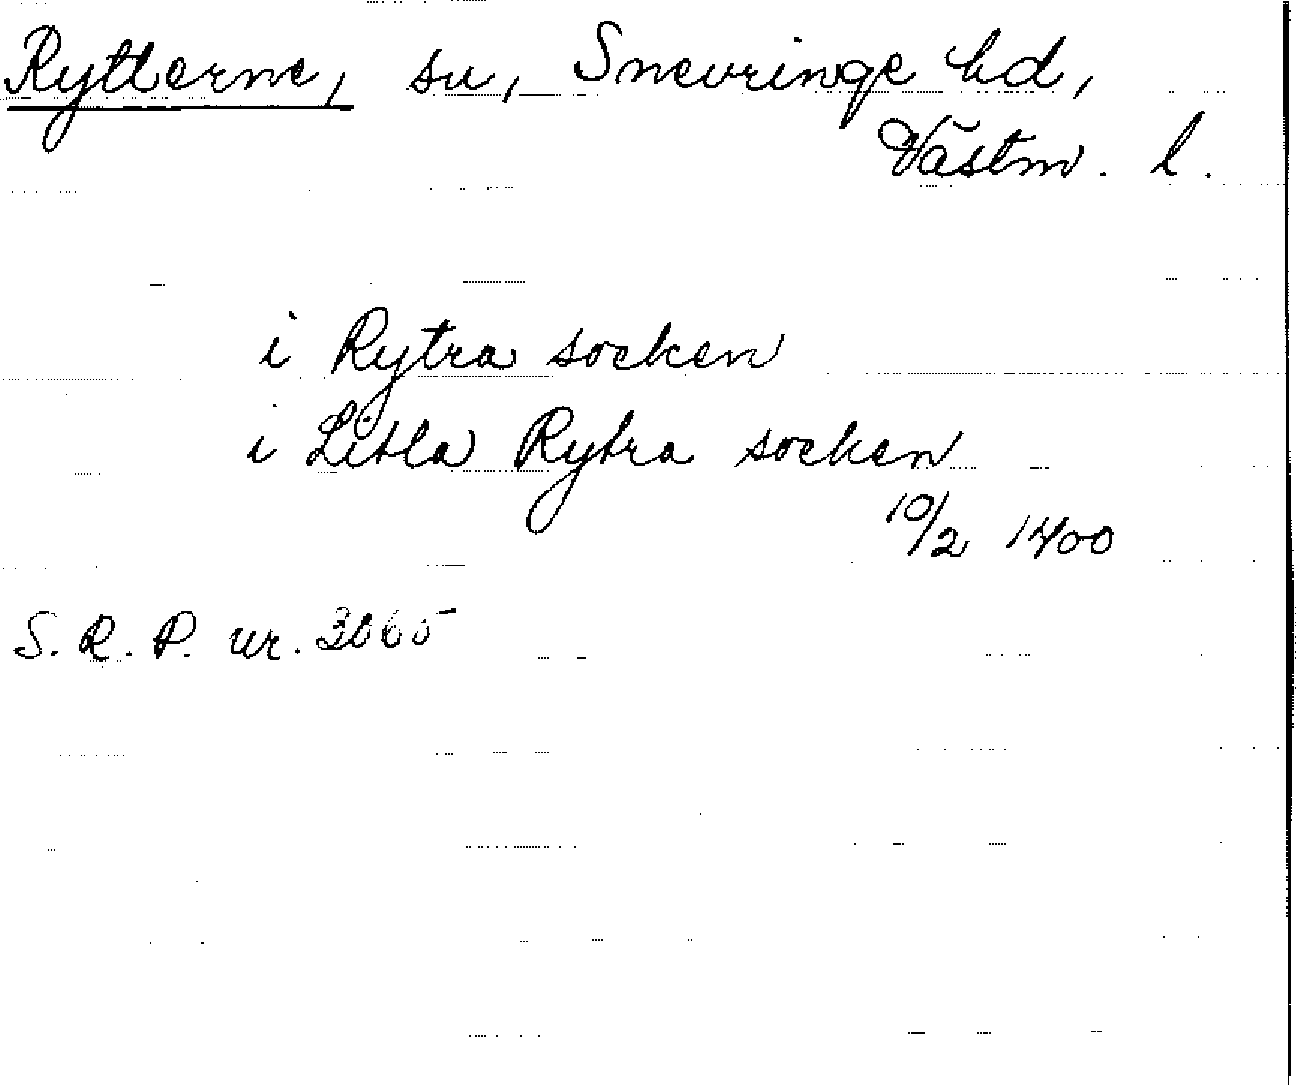 Rytterne, sn, Snevringe hd,
Västm. l.
i Rytra socken
i Litla Rytra socken
10/2 1400
S. R. P. nr. 3065